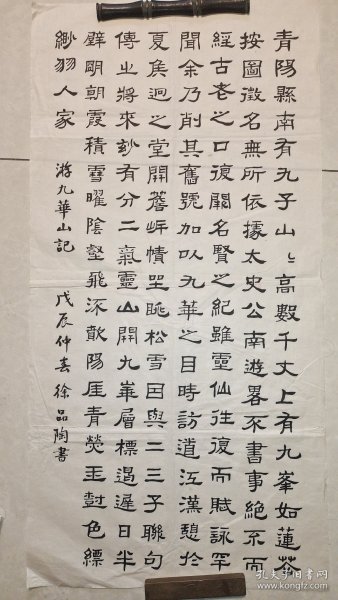 青陽縣南有九子山山高數千丈上有九峯如蓮花
按圖徵名無所依據太史公南遊畧不書事絕古而
經古老之口復闕名賢之紀雖靈仙往復而賦詠罕
聞余乃削其舊號加以九華之目時訪道江漢憩於
夏侯迥之堂開簷岸幘坐眺松雪因與二三子聯句
傳之將來妙有分二氣靈山開九華層標遏遲日半
壁明朝霞積雪曜陰壑飛流歕陽崖青熒玉樹色縹
緲羽人家 游九華山記 戊辰仲春徐品陶書
孔夫子旧书网